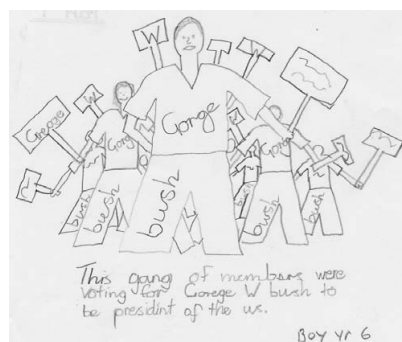 W
T
W
W
Gorge
Goeoge
Gorg
Gorge
bush
bush
bush
bush
bush
This gang of members were
voting for Gorege W bush to
be presidint of the us.
Boy yr 6